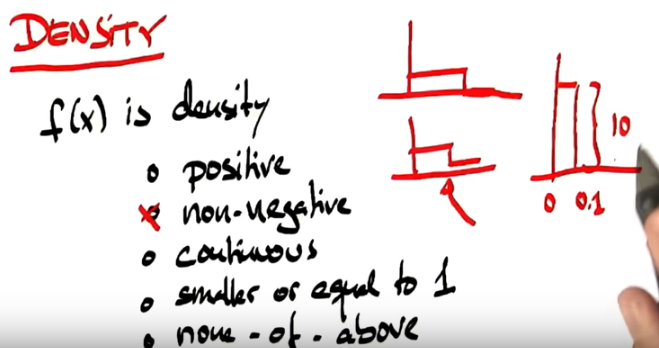 DENSITY
f(x) is density
positive
non-negative
continuous
smaller or equal to 1
none-of-above
10
0 0.1